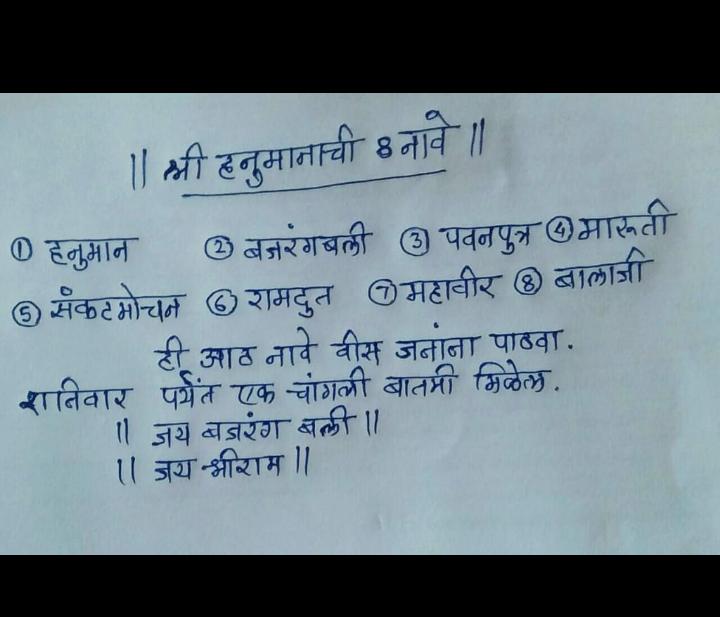 || श्री हनुमानाची 8 नावे ||
① हनुमान ② बजरंगबली ③ पवनपुत्र ④ मारूती
⑤ संकटमोचन ⑥ रामदुत ⑦ महावीर ⑧ बालाजी
ही आठ नावे वीस जनांना पाठवा.
शनिवार पर्यंत एक चांगली बातमी मिळेल.
|| जय बजरंग बली ||
|| जय श्रीराम ||